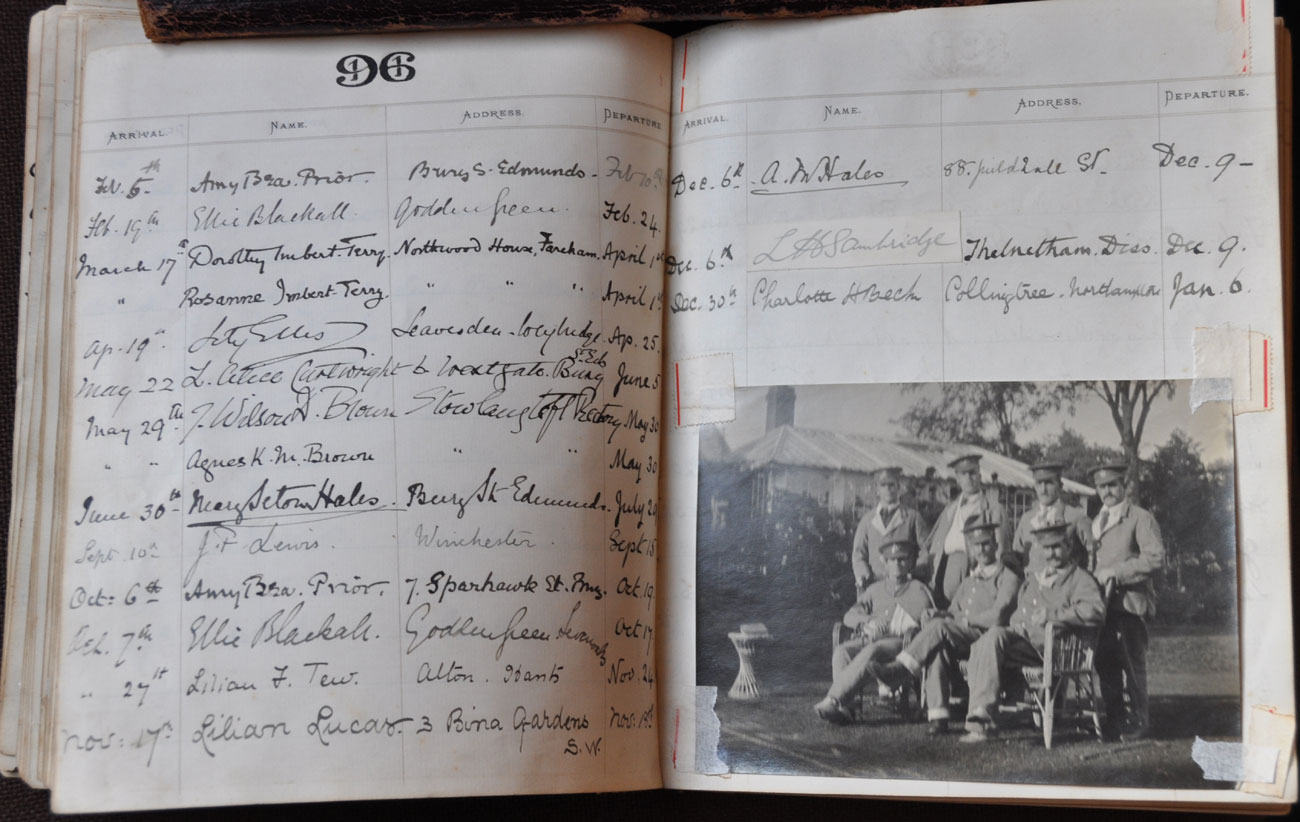 96
ARRIVAL. NAME. ADDRESS. DEPARTURE
Feb. 6th Amy Bea. Prior. Bury S. Edmunds - Feb 10th
Feb. 19th Ellie Blackall. Godden Green. Feb. 24.
March 17th Dorothy Imbert-Terry. Northwood House, Fareham. April 1st
" Rosanne Imbert-Terry. " " " April 1st
Ap. 19th Ellis Leavesden - Weybridge. Ap. 25.
St. Eds
May 22 L. Alice Cartwright 6 Westgate. Bury June 5
May 29th J. Wilson D. Brown Stowlangtoft Rectory May 30
" " Agnes K. M. Brown " " May 30
June 30th Mary Seton Hales. Bury St. Edmunds. July 20
Sept. 10th J. F. Lewis. Winchester. Sept 15
Oct: 6th Amy Bea. Prior. 7. Sparhawk St. Bury. Oct. 19
Oct. 7th Ellie Blackall. Godden Green Sevenoaks Oct 17
" 27st Lilian F. Tew. Alton. Hants Nov. 24
Nov: 17th Lilian Lucas. 3 Bina Gardens Nov: 18th
S.W.
ARRIVAL. NAME. ADDRESS. DEPARTURE.
Dec. 6th A. M Hales 88. Guildhall St. Dec. 9 -
Dec. 6th L H Sambridge Thelnetham. Diss. Dec. 9.
Dec. 30th Charlotte H Beck Collingtree. Northampton Jan. 6.